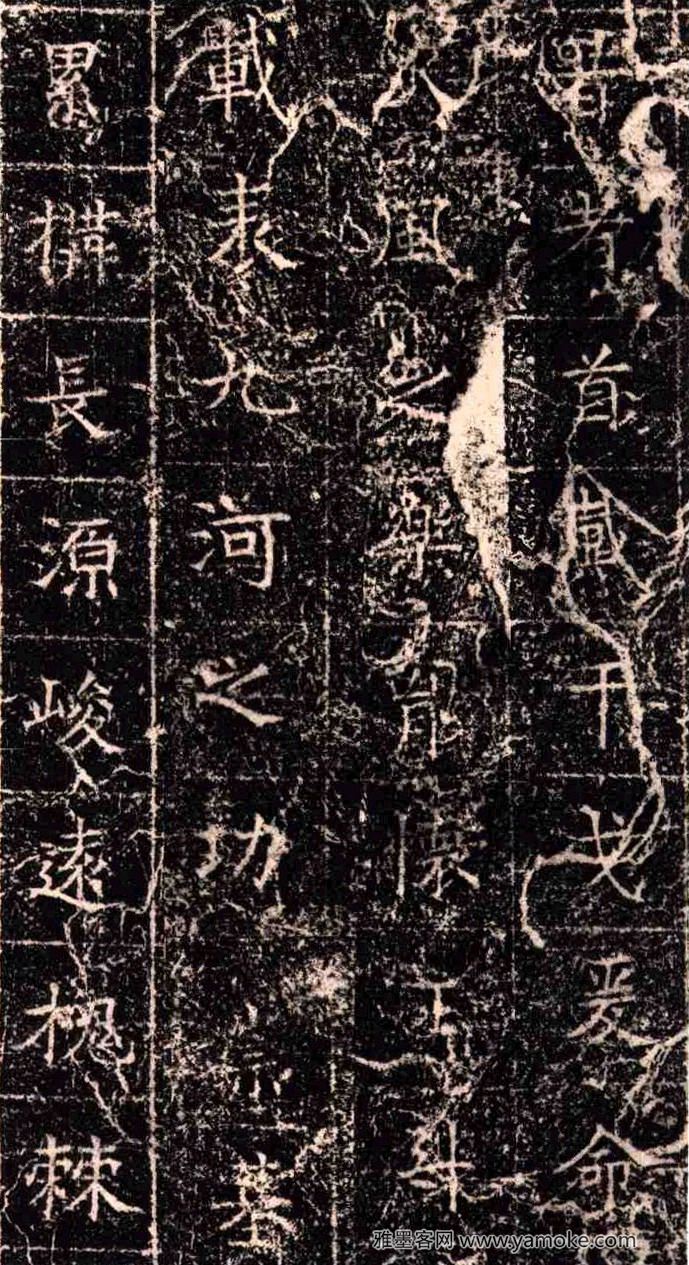 昔者首戴干戈爰命
風之樂能懷玉斗
載表九河之功葉
累構長源峻遠槐棘
雅墨客网 www.yamoke.com